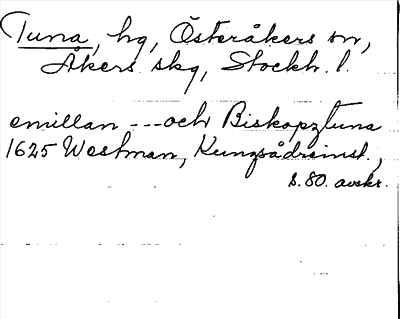 Tuna, hg, Österåkers sn,
Åkers skg, Stockh. l.
emillan --- och Biskopztuna
1625 Westman, Kungsådreinst.,
s. 80. avskr.